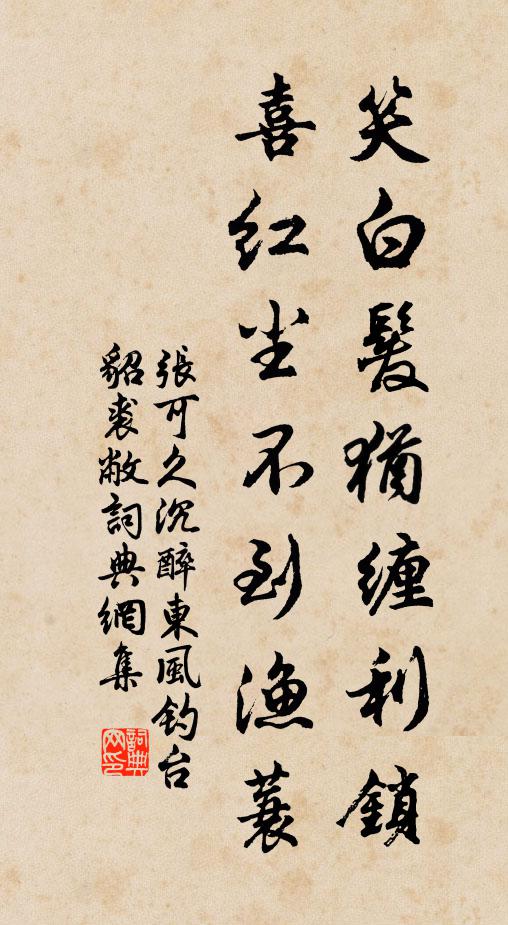 笑白髮猶纏利鎖
喜紅尘不到漁蓑
張可久沉醉東風釣台
貂裘敝詞典網集
詞典
网印